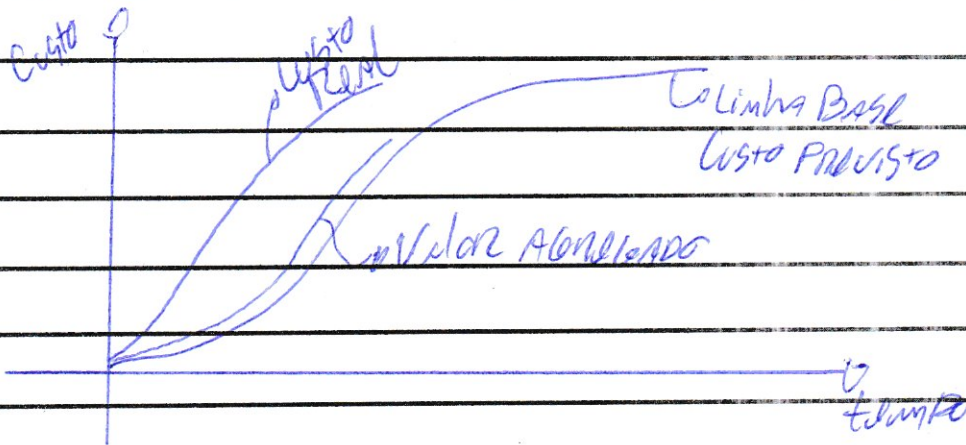 Custo
Custo
Real
Linha Base
Custo Previsto
Valor Agregado
tempo